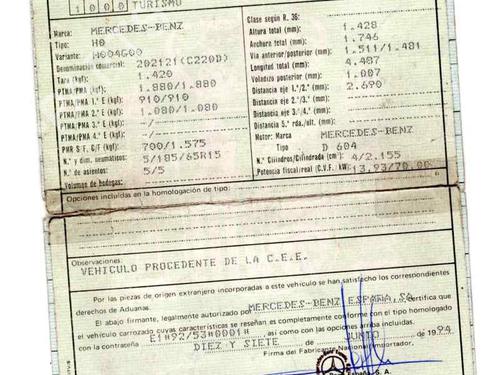 1000 TURISMO
Marca: MERCEDES-BENZ
Tipo: H0
Variante: H004G00
Denominación comercial: 202121(C220D)
Tara (kgf): 1.420
PTMA/PMA (kgf): 1.880/1.880
PTMA/PMA 1.º E (kgf): 910/910
PTMA/PMA 2.º E (kgf): 1.080/1.080
PTMA/PMA 3.º E (kgf): -/-
PTMA/PMA 4.º E (kgf): -/-
PMR S/F, C/F (kgf): 700/1.575
N.º y dim. neumáticos: 5/185/65R15
N.º de asientos: 5/5
Volumen de bodegas: -
Clase según R. 36: -
Altura total (mm): 1.428
Anchura total (mm): 1.746
Vía anterior/posterior (mm): 1.511/1.481
Longitud total (mm): 4.487
Voladizo posterior (mm): 1.007
Distancia eje 1.º/2.º (mm): 2.690
Distancia eje 2.º/3.º (mm): -
Distancia eje 3.º/4.º (mm): -
Distancia 5.ª rda./últ. (mm): -
Motor: Marca MERCEDES-BENZ
Tipo D 604
N.º Cilindros/Cilindrada (cm³) 4/2.155
Potencia fiscal/real (C.V.F. kW) 13,93/70.00
Opciones incluidas en la homologación de tipo:
Observaciones:
VEHICULO PROCEDENTE DE LA C.E.E.
Por las piezas de origen extranjero incorporadas a este vehículo se han satisfecho los correspondientes
derechos de Aduanas.
El abajo firmante, legalmente autorizado por MERCEDES-BENZ ESPAÑA,SA certifica que
el vehículo carrozado cuyas características se reseñan es completamente conforme con el tipo homologado
con la contraseña E1*92/53*0001* así como con las opciones arriba incluidas.
DIEZ Y SIETE de JUNIO de 1994
Firma del Fabricante Nacional/Importador.